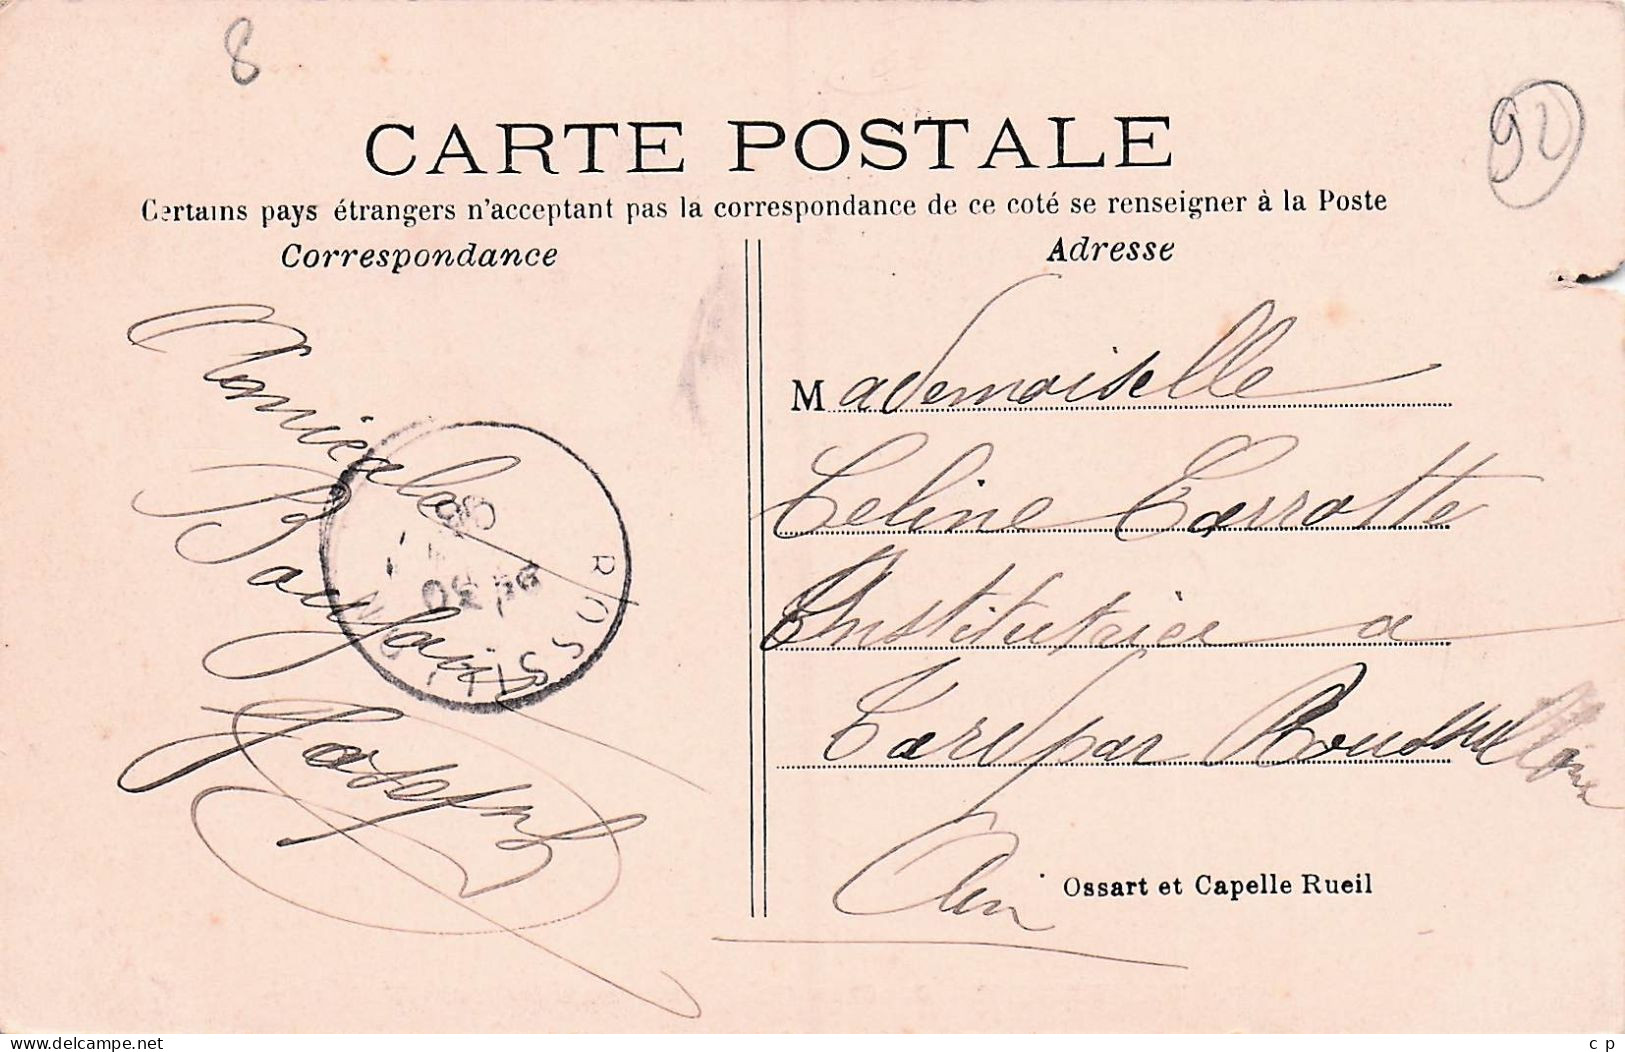 8
92
CARTE POSTALE
Certains pays étrangers n'acceptant pas la correspondance de ce coté se renseigner à la Poste
Correspondance
Adresse
Mademoiselle
Celine Carrotte
Institutrice a
par
Ain
Ossart et Capelle Rueil
Joseph
ROSSILLON
www.delcampe.net
c p